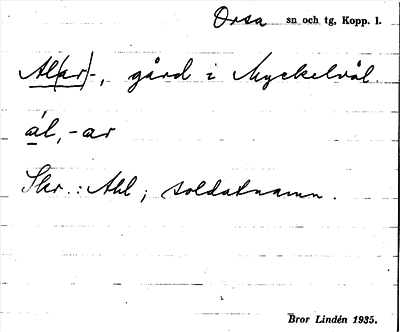 Orsa sn och tg, Kopp. l.
Al(ar)-, gård i Myckelvål.
ál, -ar
Skr.: Ahl; soldatnamn.
Bror Lindén 1935.